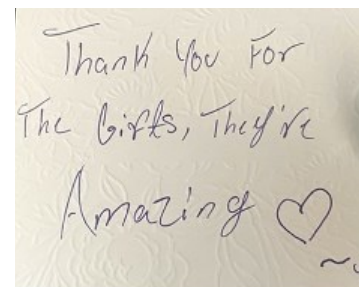 Thank You For
The Gifts, They're
Amazing ♡
~